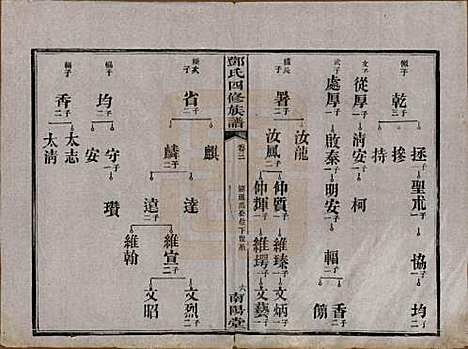 乾
三子
拯
子
聖朮
子
協
子
均
子
摻
持
從厚
子
清安
子
柯
處厚
子
啟秦
子
明安
子
輻
二子
香
子
筋
署
二子
汝龍
汝鳳
二子
仲質
子
維瑧
子
文炳
子
仲輝
子
維琾
子
文藝
子
鄧氏四修族譜
卷二
南陽堂
省
二子
麒
麟
二子
達
遠
二子
維宣
二子
文烈
子
文昭
維翰
均
二子
守
子
瓚
安
香
二子
太志
太清